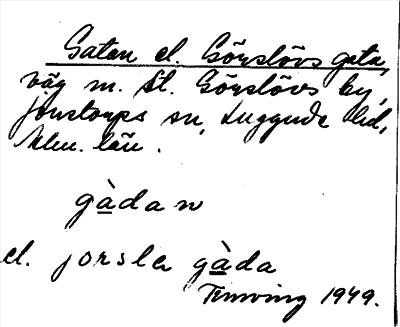 Gatan el. Görslövs gata,
väg m. St. Görslövs by,
Jonstorps sn, Luggude hd,
Mlm. län.
gàdan
el. jorslev gàda
Ternving 1949.